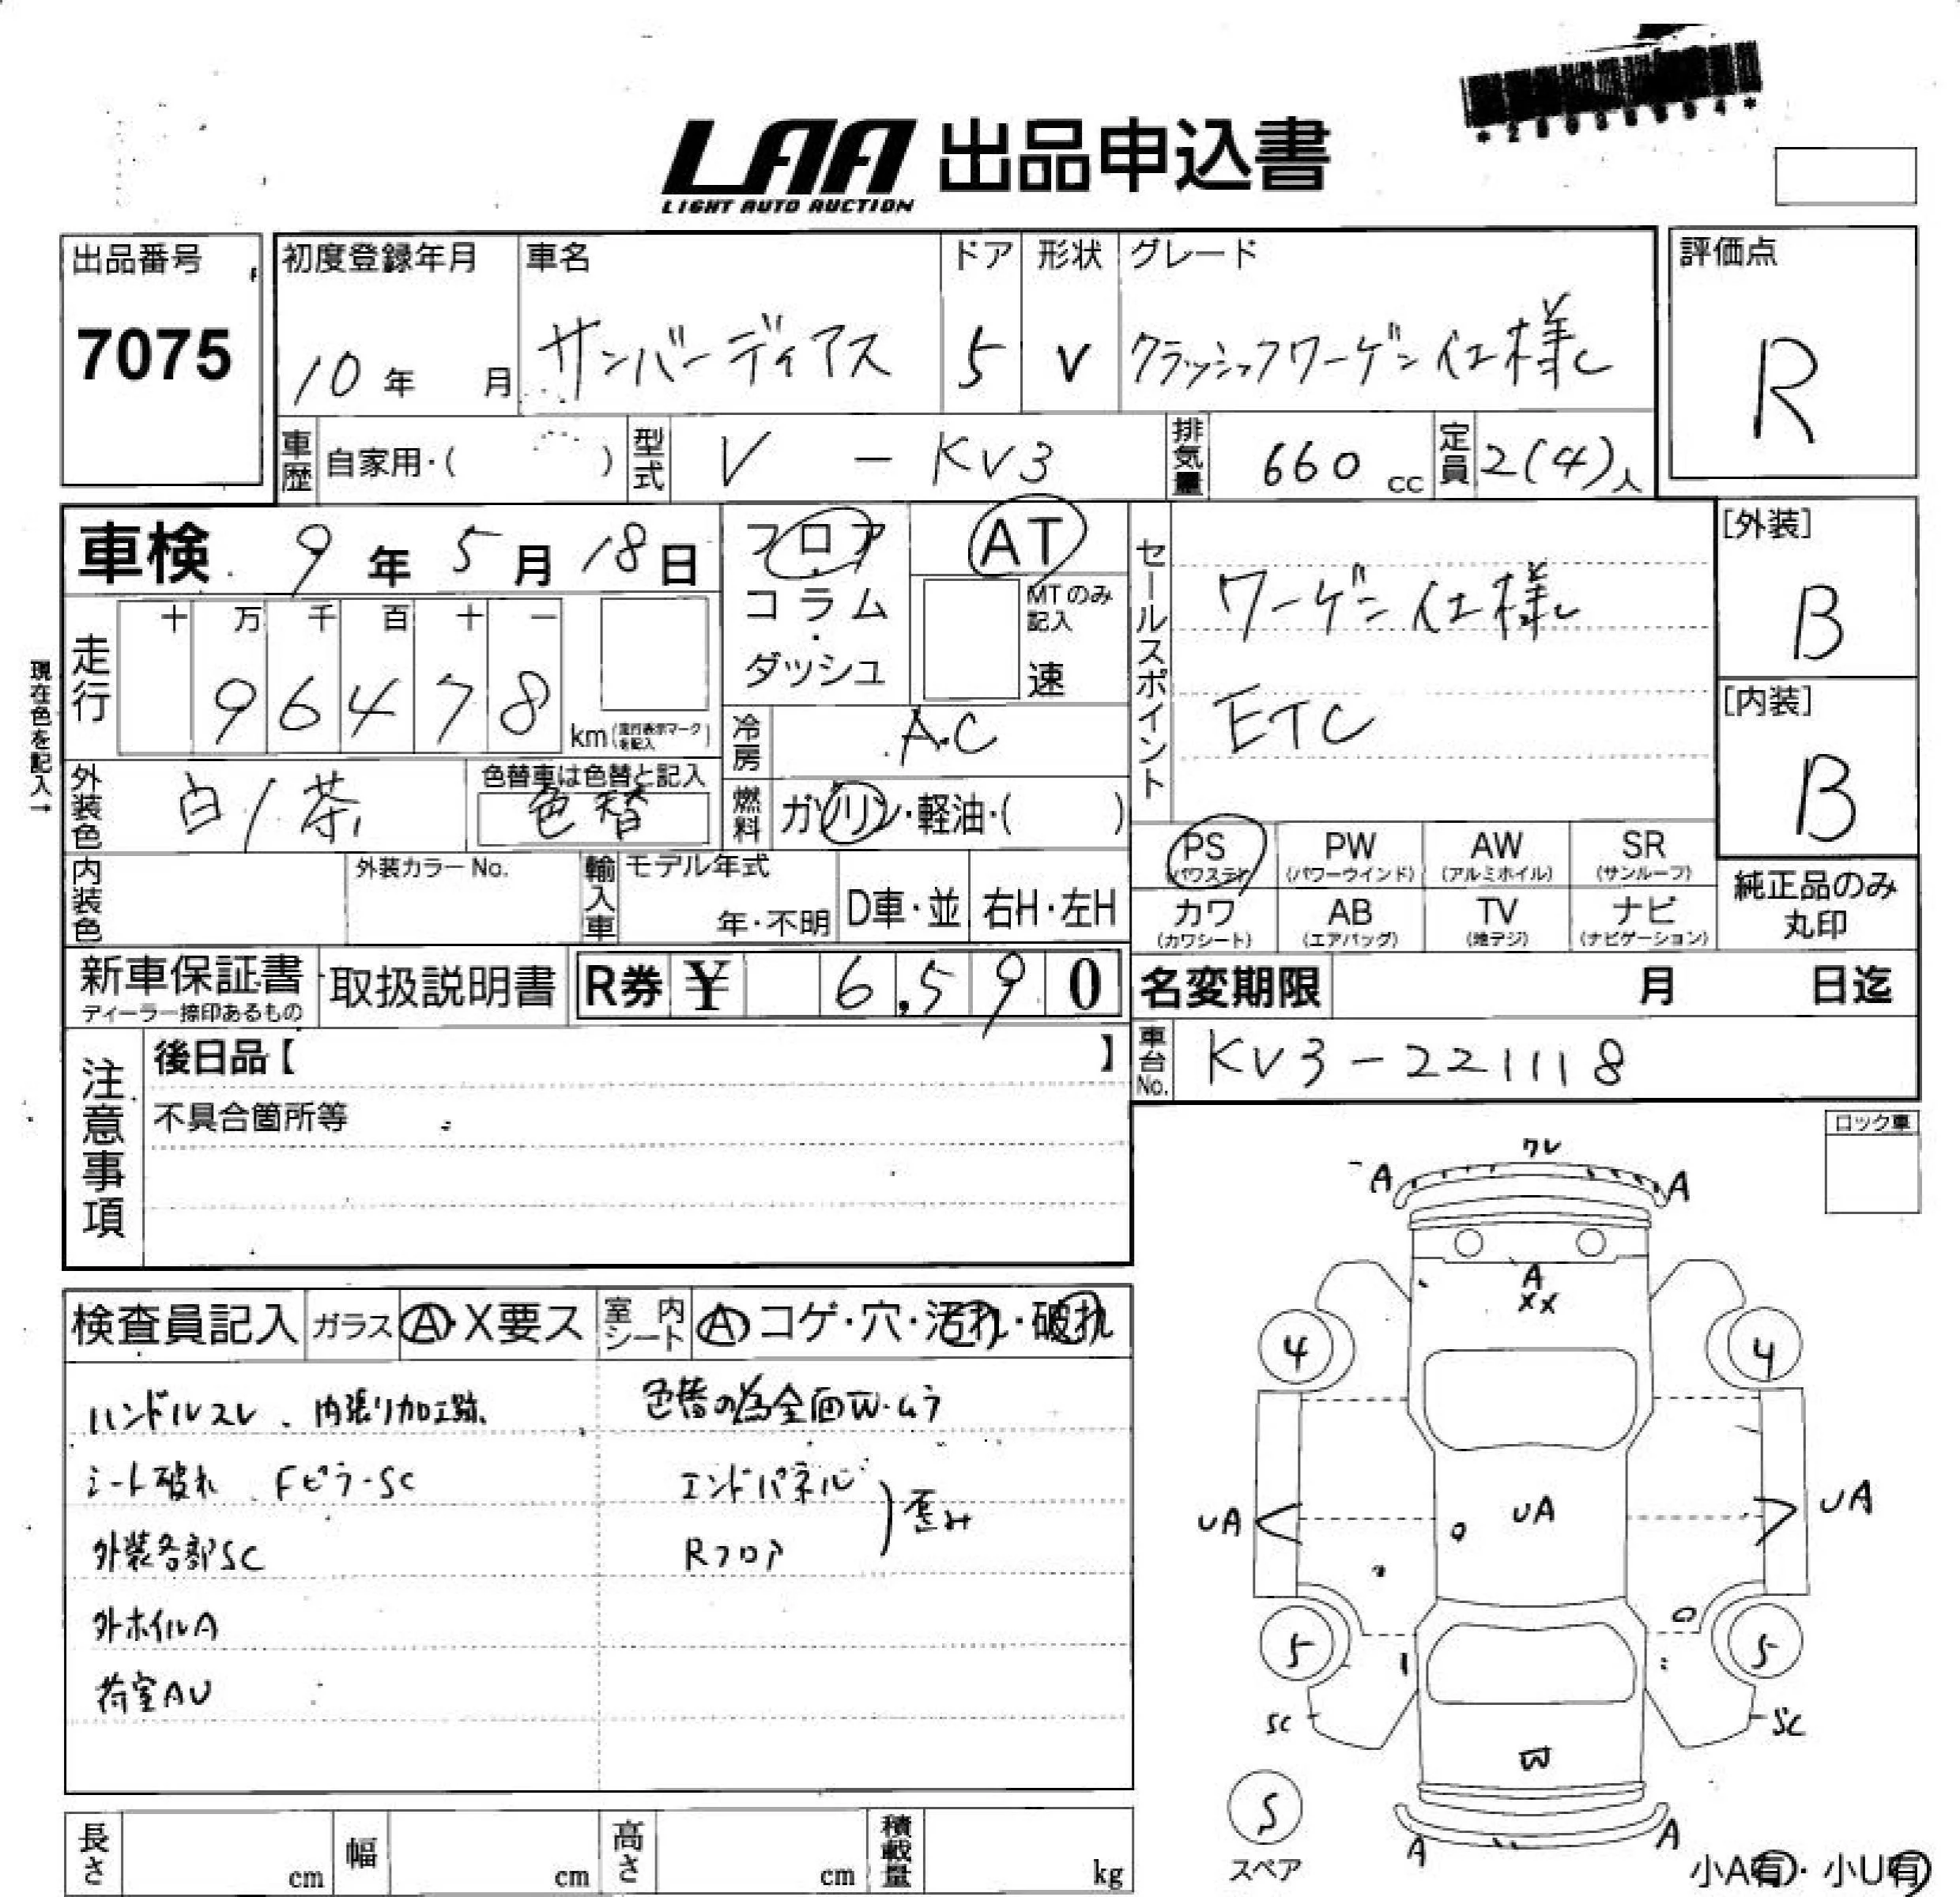 LAA 出品申込書
LIGHT AUTO AUCTION
出品番号
7075
初度登録年月
10年 月
車名
サンバーディアス
ドア
5
形状
V
グレード
クラッシックワーゲン仕様
評価点
R
車歴 自家用・( )
型式 V - KV3
排気量 660 cc
定員 2(4)人
車検 9年5月18日
フロア・コラム・ダッシュ
AT
MTのみ記入
速
セールスポイント
ワーゲン仕様
ETC
[外装]
B
[内装]
B
純正品のみ
丸印
走行
十 万 千 百 十 一
9 6 4 7 8
km(走行表示マークを記入)
現在色を記入→
冷房 A.C
外装色 白/茶
色替車は色替と記入
色替
燃料 ガソリン・軽油・( )
PS (パワステ)
PW (パワーウインド)
AW (アルミホイル)
SR (サンルーフ)
カワ (カワシート)
AB (エアバッグ)
TV (地デジ)
ナビ (ナビゲーション)
内装色
外装カラーNo.
輸入車
モデル年式
年・不明
D車・並
右H・左H
新車保証書
ディーラー捺印あるもの
取扱説明書
R券 ¥ 6,590
名変期限 月 日迄
車台No. KV3-221118
注意事項
後日品【 】
不具合箇所等
ロック車
検査員記入
ガラス A・X要ス
室内シート A コゲ・穴・汚れ・破れ
ハンドルスレ、内張り加工跡、
シート破れ、Fピラ-SC
外装各部SC
外ホイルA
荷室AU
色替の為全面W・ムラ
エンドパネル
Rフロア
歪み
ワレ
A A
A
XX
4 4
UA UA UA
5 5
SC SC
W
S
スペア
A A
小A有・小U有
長さ cm
幅 cm
高さ cm
積載量 kg